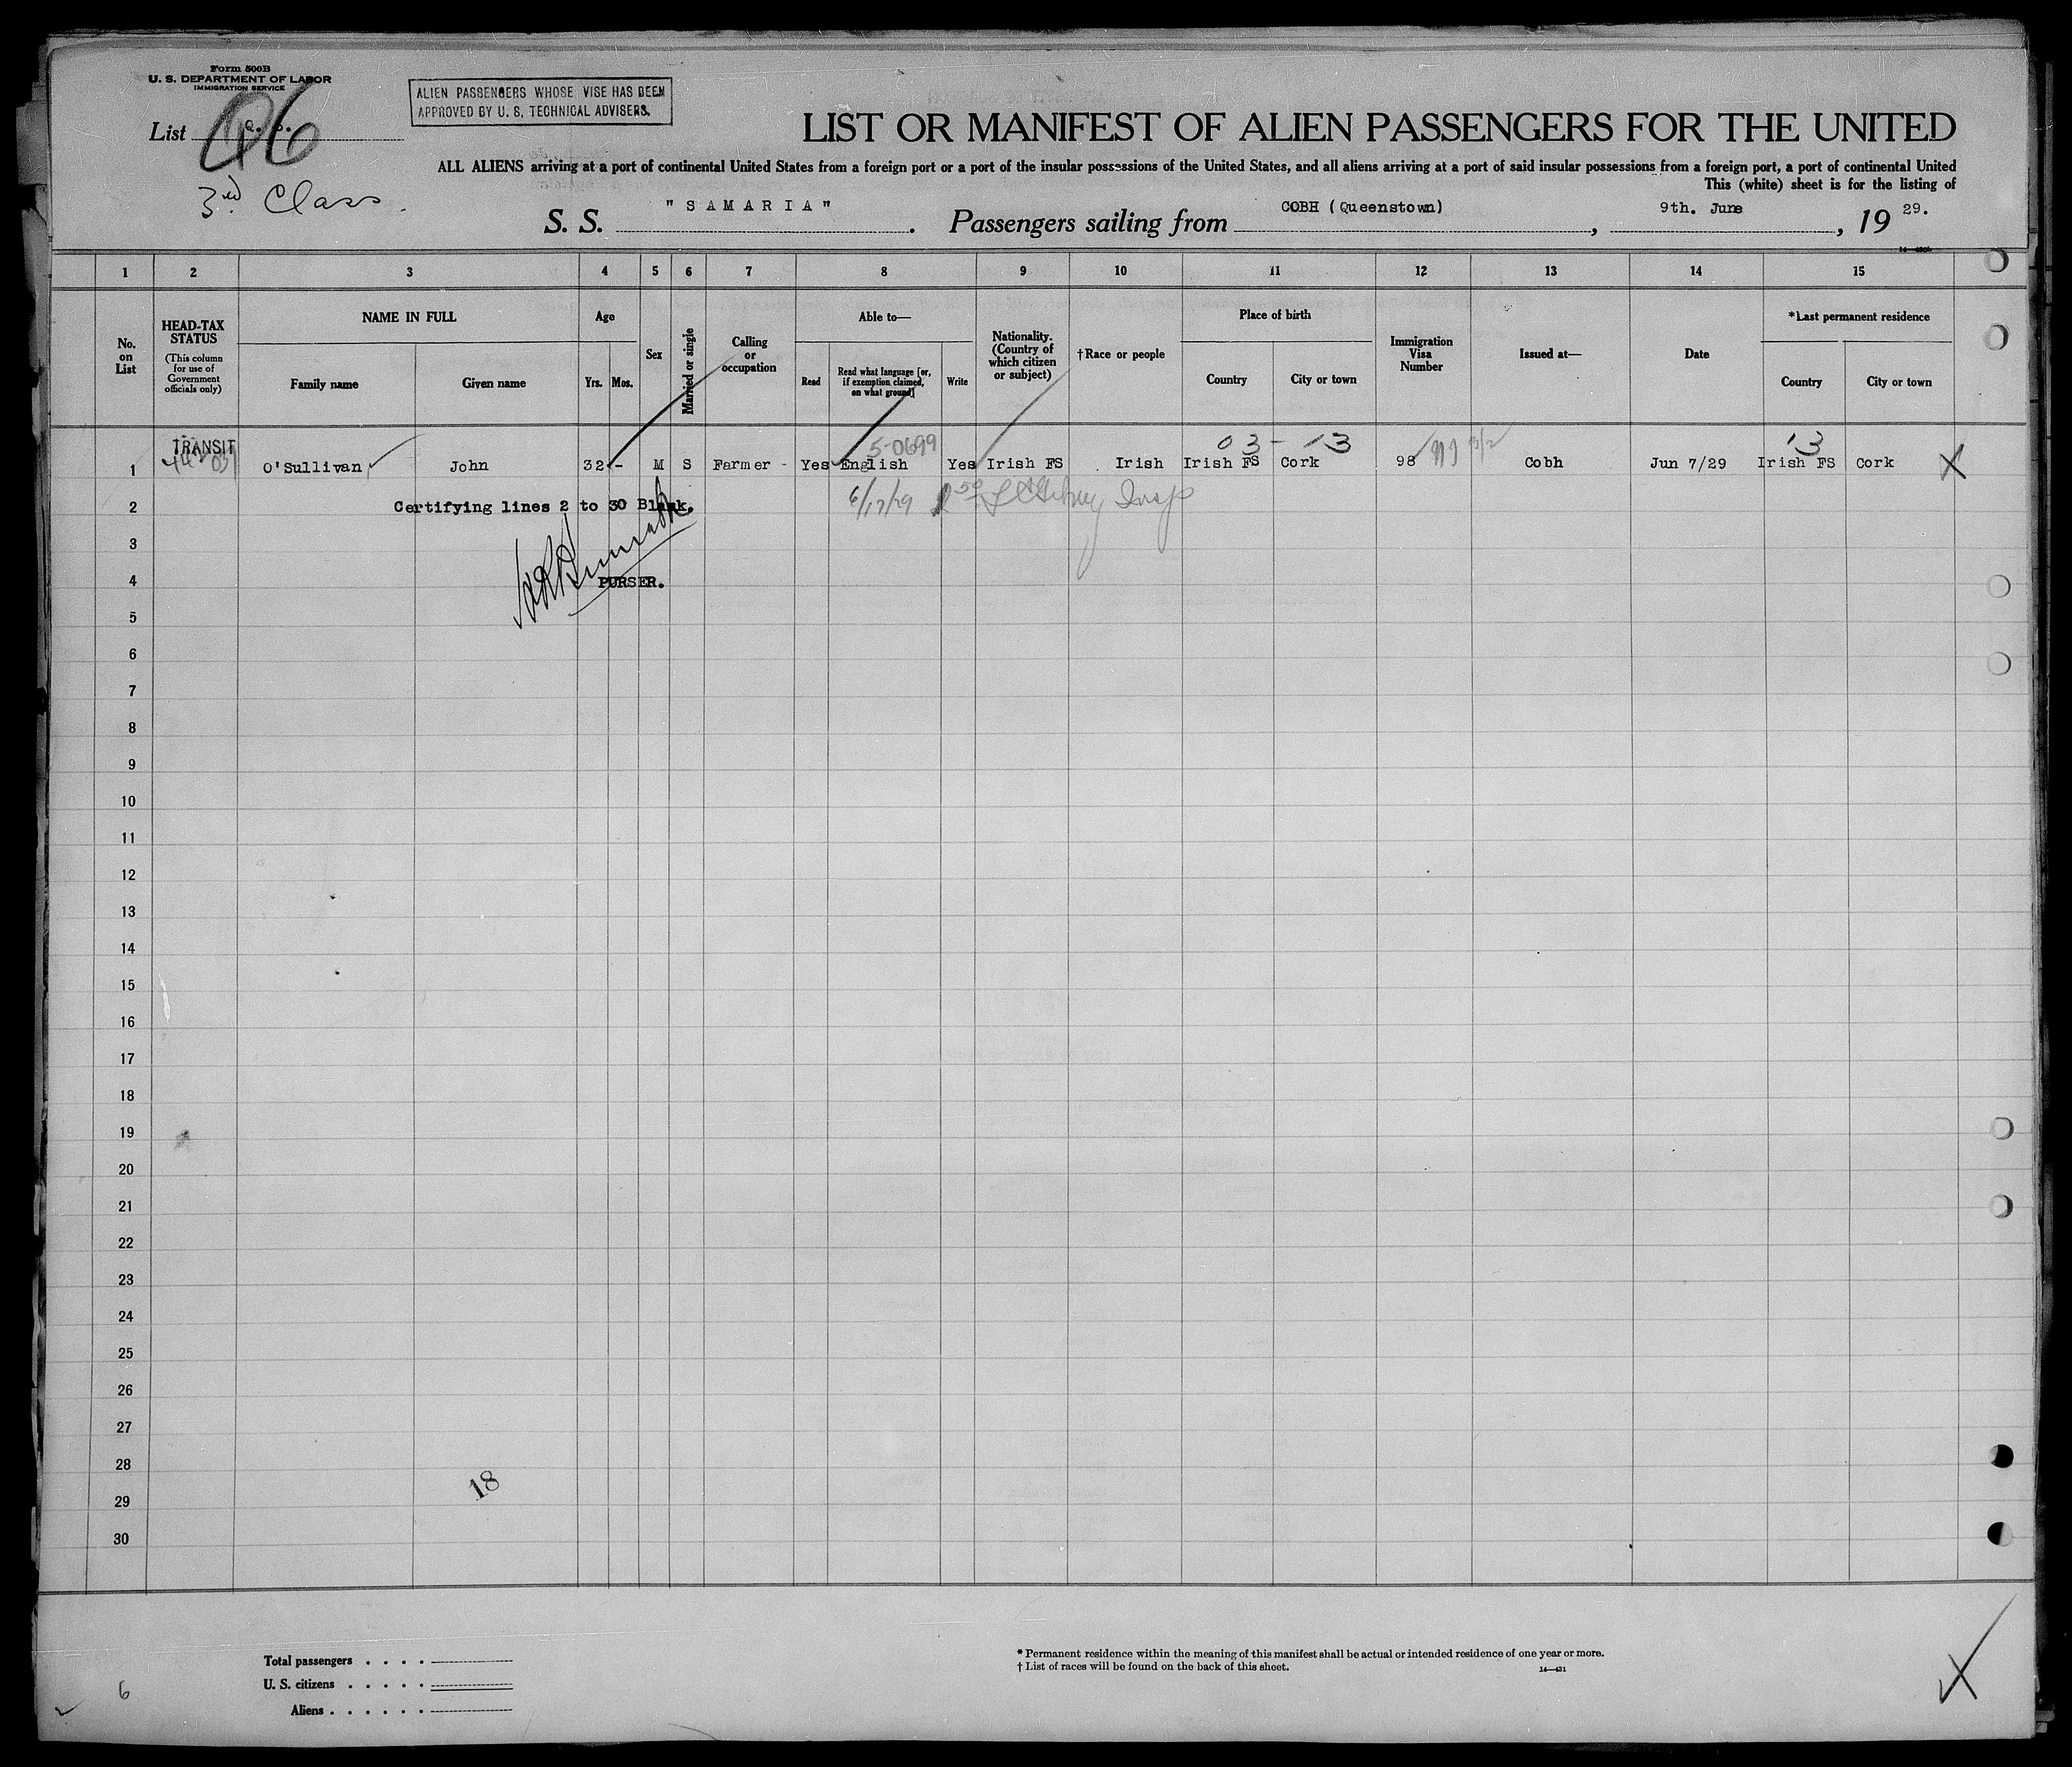 Form 500B
U. S. DEPARTMENT OF LABOR
IMMIGRATION SERVICE
ALIEN PASSENGERS WHOSE VISE HAS BEEN
APPROVED BY U. S. TECHNICAL ADVISERS.
List
3rd Class.
LIST OR MANIFEST OF ALIEN PASSENGERS FOR THE UNITED
ALL ALIENS arriving at a port of continental United States from a foreign port or a port of the insular possessions of the United States, and all aliens arriving at a port of said insular possessions from a foreign port, a port of continental United
This (white) sheet is for the listing of
S. S. "SAMARIA". Passengers sailing from COBH (Queenstown), 9th. June, 19 29.
1 2 3 4 5 6 7 8 9 10 11 12 13 14 15
No. on List
HEAD-TAX STATUS (This column for use of Government officials only)
NAME IN FULL
Family name Given name
Age
Yrs. Mos.
Sex
Married or single
Calling or occupation
Able to—
Read Read what language [or, if exemption claimed, on what ground] Write
Nationality. (Country of which citizen or subject)
†Race or people
Place of birth
Country City or town
Immigration Visa Number
Issued at—
Date
*Last permanent residence
Country City or town
TRANSIT
5-0699 03 - 13 13
1 O'Sullivan John 32 - M S Farmer - Yes English Yes Irish FS Irish Irish FS Cork 98 Cobh Jun 7/29 Irish FS Cork X
2 Certifying lines 2 to 30 Blank. 6/17/29
3
4 PURSER.
5
6
7
8
9
10
11
12
13
14
15
16
17
18
19
20
21
22
23
24
25
26
27
28
18
29
30
Total passengers . . . .
U. S. citizens . . . . .
Aliens . . . . . .
6
* Permanent residence within the meaning of this manifest shall be actual or intended residence of one year or more.
† List of races will be found on the back of this sheet.
14—431